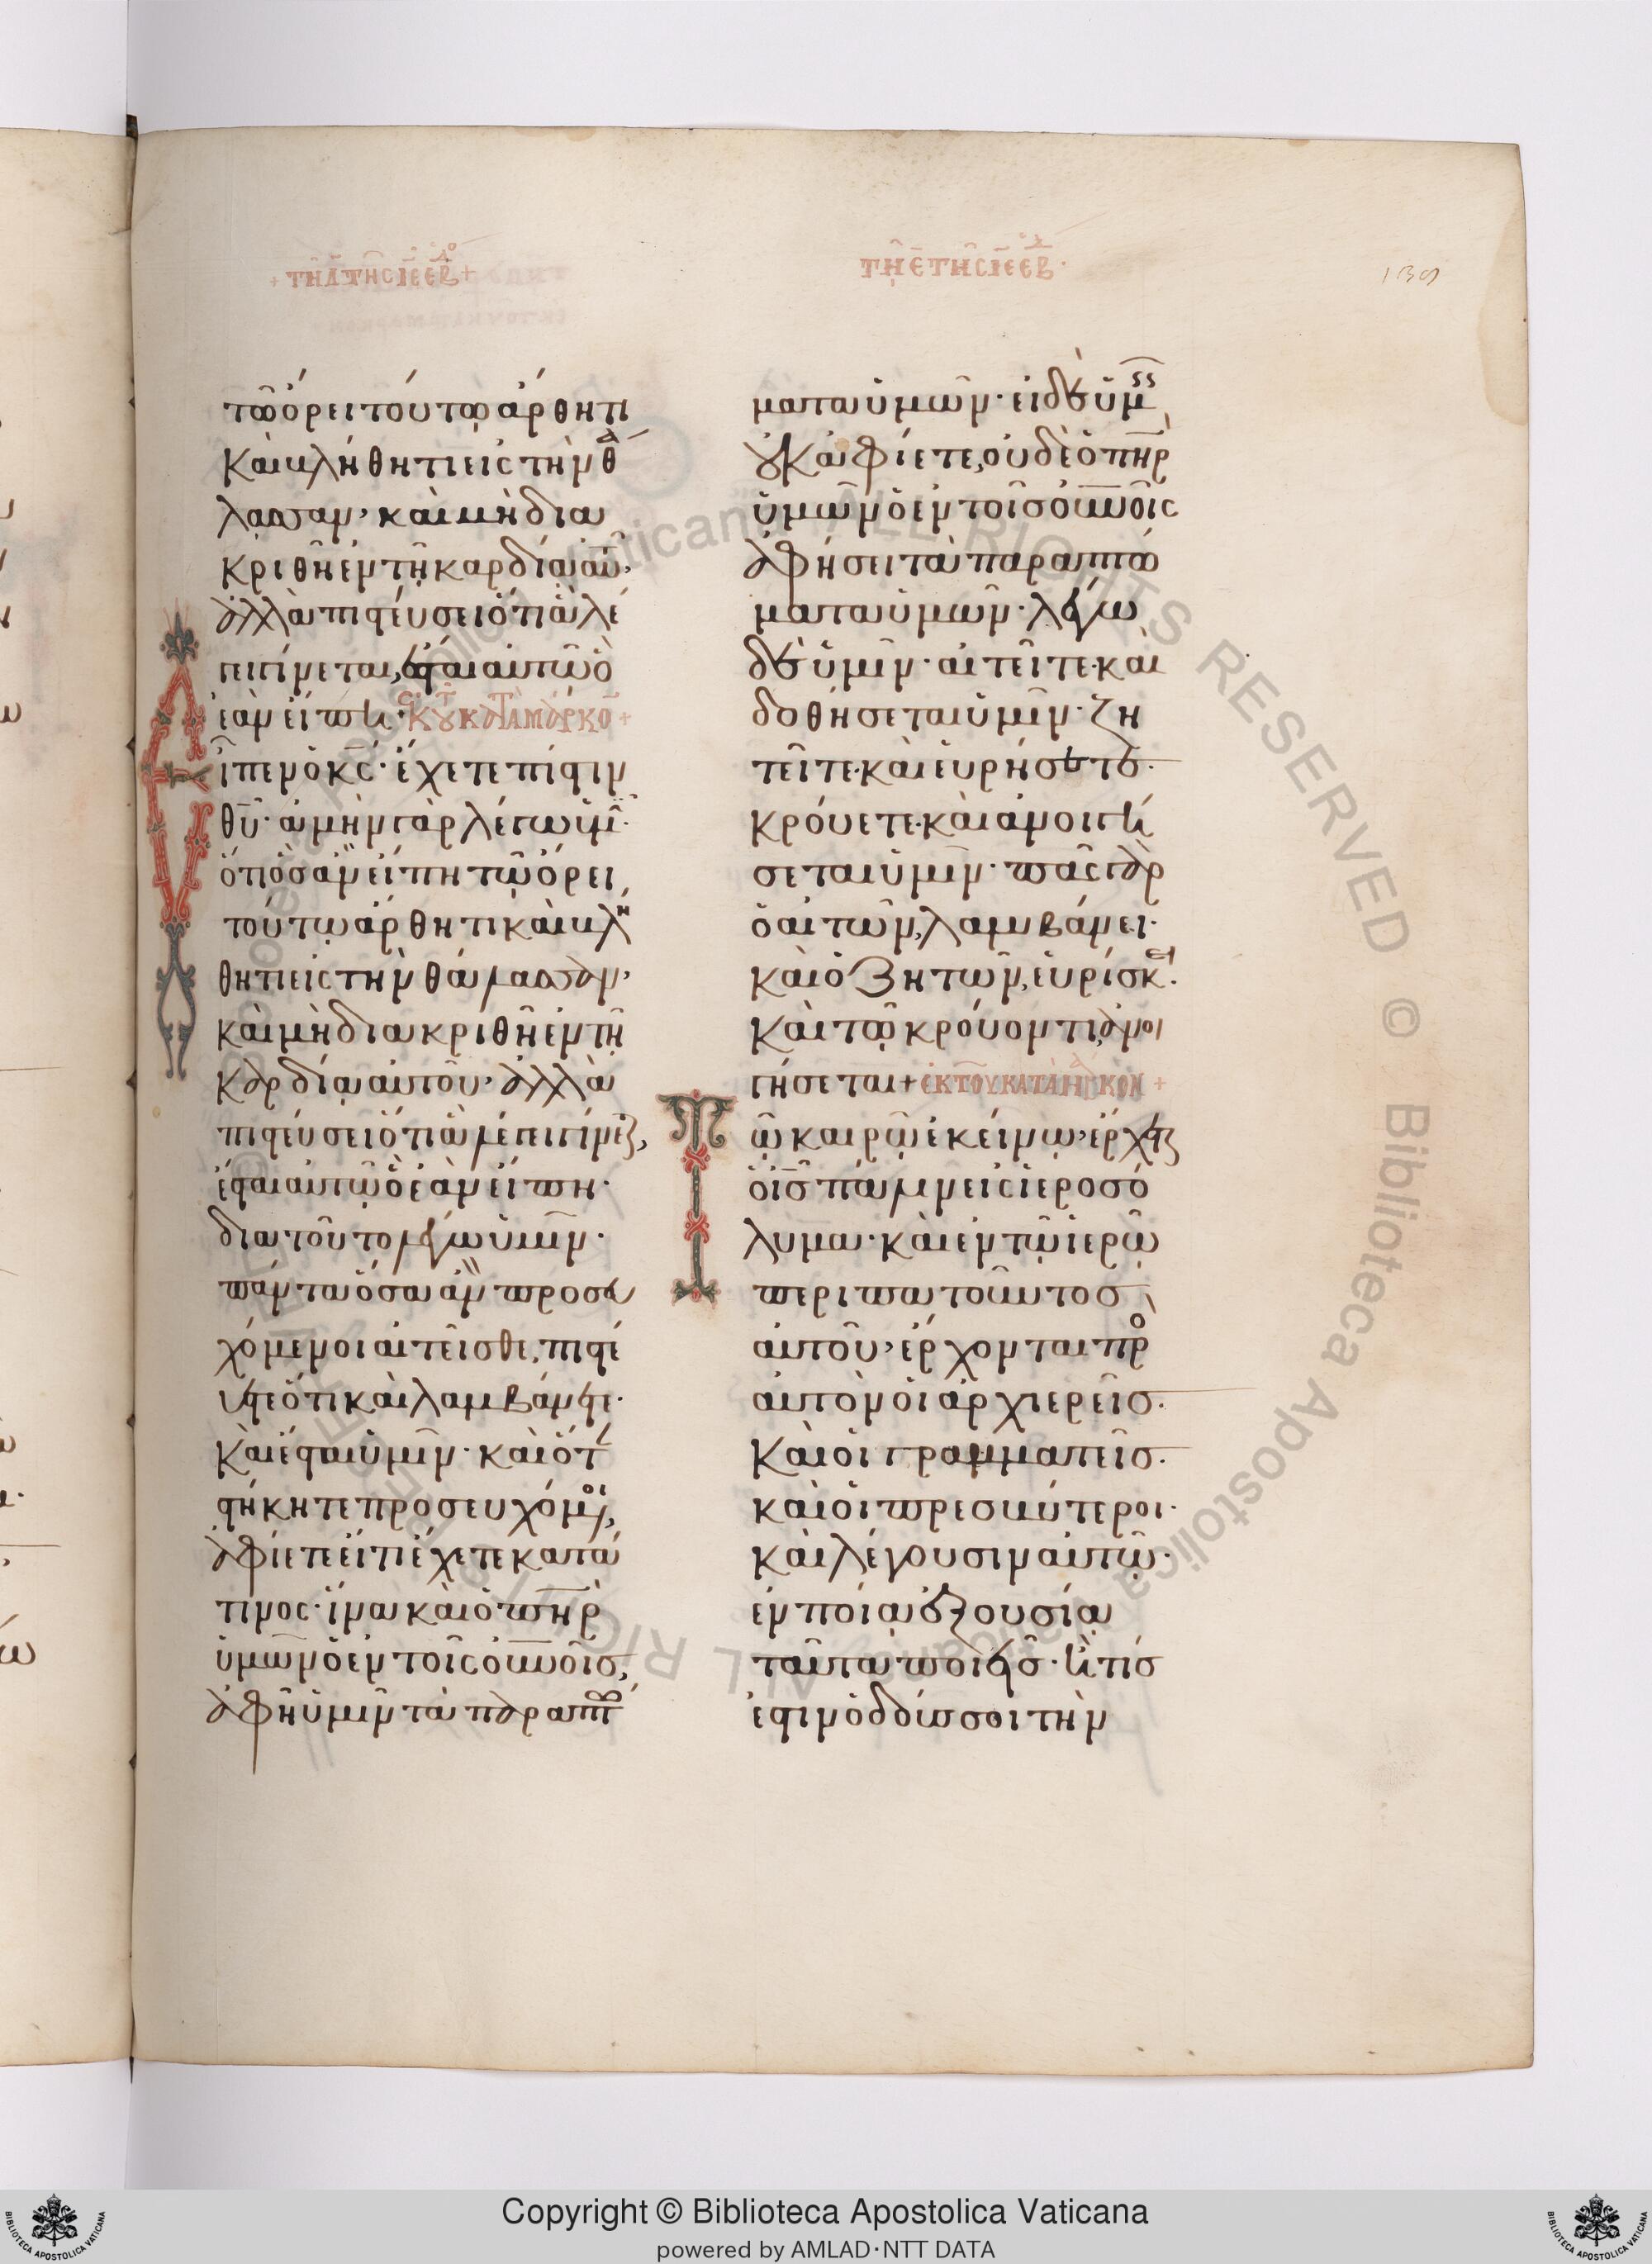 + τῆ δ τῆς ιε ἑβδ +
τῶ ὄρει τούτω ἄρθητι
καὶ βλήθητι εἰς τὴν θά
λασσαν, καὶ μὴ δια
κριθῆ ἐν τῆ καρδία αὐτ,
ἀλλὰ πιστεύσει ὅτι ἃ λέ
γει γίνεται, ἔσται αὐτῶ ὃ
ἐὰν εἴπη· ἐκ τοῦ κατὰ μάρκον +
Εἶπεν ὁ κς· ἔχετε πίστιν
θυ· ἀμὴν γὰρ λέγω ὑμῖ·
ὅτι ὃς ἂν εἴπη τῶ ὄρει
τούτω ἄρθητι καὶ βλή
θητι εἰς τὴν θάλασσαν,
καὶ μὴ διακριθῆ ἐν τῆ
καρδία αὐτοῦ, ἀλλὰ
πιστεύσει ὅτι ἃ λέγει γίνεται,
ἔσται αὐτῶ ὃ ἐὰν εἴπη·
διατοῦτο λέγω ὑμῖν·
πάντα ὅσα ἂν προσευ
χόμενοι αἰτεῖσθε, πιστε
ύετε ὅτι καὶ λαμβάνετε·
καὶ ἔσται ὑμῖν· καὶ ὅτ
στήκητε προσευχόμοι,
ἀφίετε εἴ τι ἔχετε κατά
τινος· ἵνα καὶ ὁ πηρ
ὑμῶν ὁ ἐν τοῖς οὐνοῖς,
ἀφῆ ὑμῖν τὰ παραπτώ
τῆ ε τῆς ιε ἑβδ·
139
ματα ὑμῶν· εἰ δὲ ὑμς
οὐκ ἀφίετε, οὐδὲ ὁ πηρ
ὑμῶν ὁ ἐν τοῖς οὐνοῖς
ἀφήσει τὰ παραπτώ
ματα ὑμῶν· λέγω
δὲ ὑμῖν· αἰτεῖτε· καὶ
δοθήσεται ὑμῖν· ζη
τεῖτε· καὶ εὑρήσετε·
κρούετε· καὶ ἀνοιγή
σεται ὑμῖν· πᾶς γὰρ
ὁ αἰτῶν, λαμβάνει·
καὶ ὁ ζητῶν, εὑρίσκει·
καὶ τῶ κρούοντι ἀνοι
γήσεται + ἐκ τοῦ κατὰ μάρκον +
Τῶ καιρῶ ἐκείνω, ἔρχεται
ὁ ις πάλιν εἰς ἱεροσό
λυμα· καὶ ἐν τῶ ἱερῶ
περιπατοῦντος
αὐτοῦ, ἔρχονται πρὸ
αὐτὸν οἱ ἀρχιερεῖς·
καὶ οἱ γραμματεῖς·
καὶ οἱ πρεσβύτεροι·
καὶ λέγουσιν αὐτῶ·
ἐν ποία ἐξουσία
ταῦτα ποιεῖς· ἢ τίς
ἐστιν ὁ δούς σοι τὴν
Copyright © Biblioteca Apostolica Vaticana
powered by AMLAD·NTT DATA